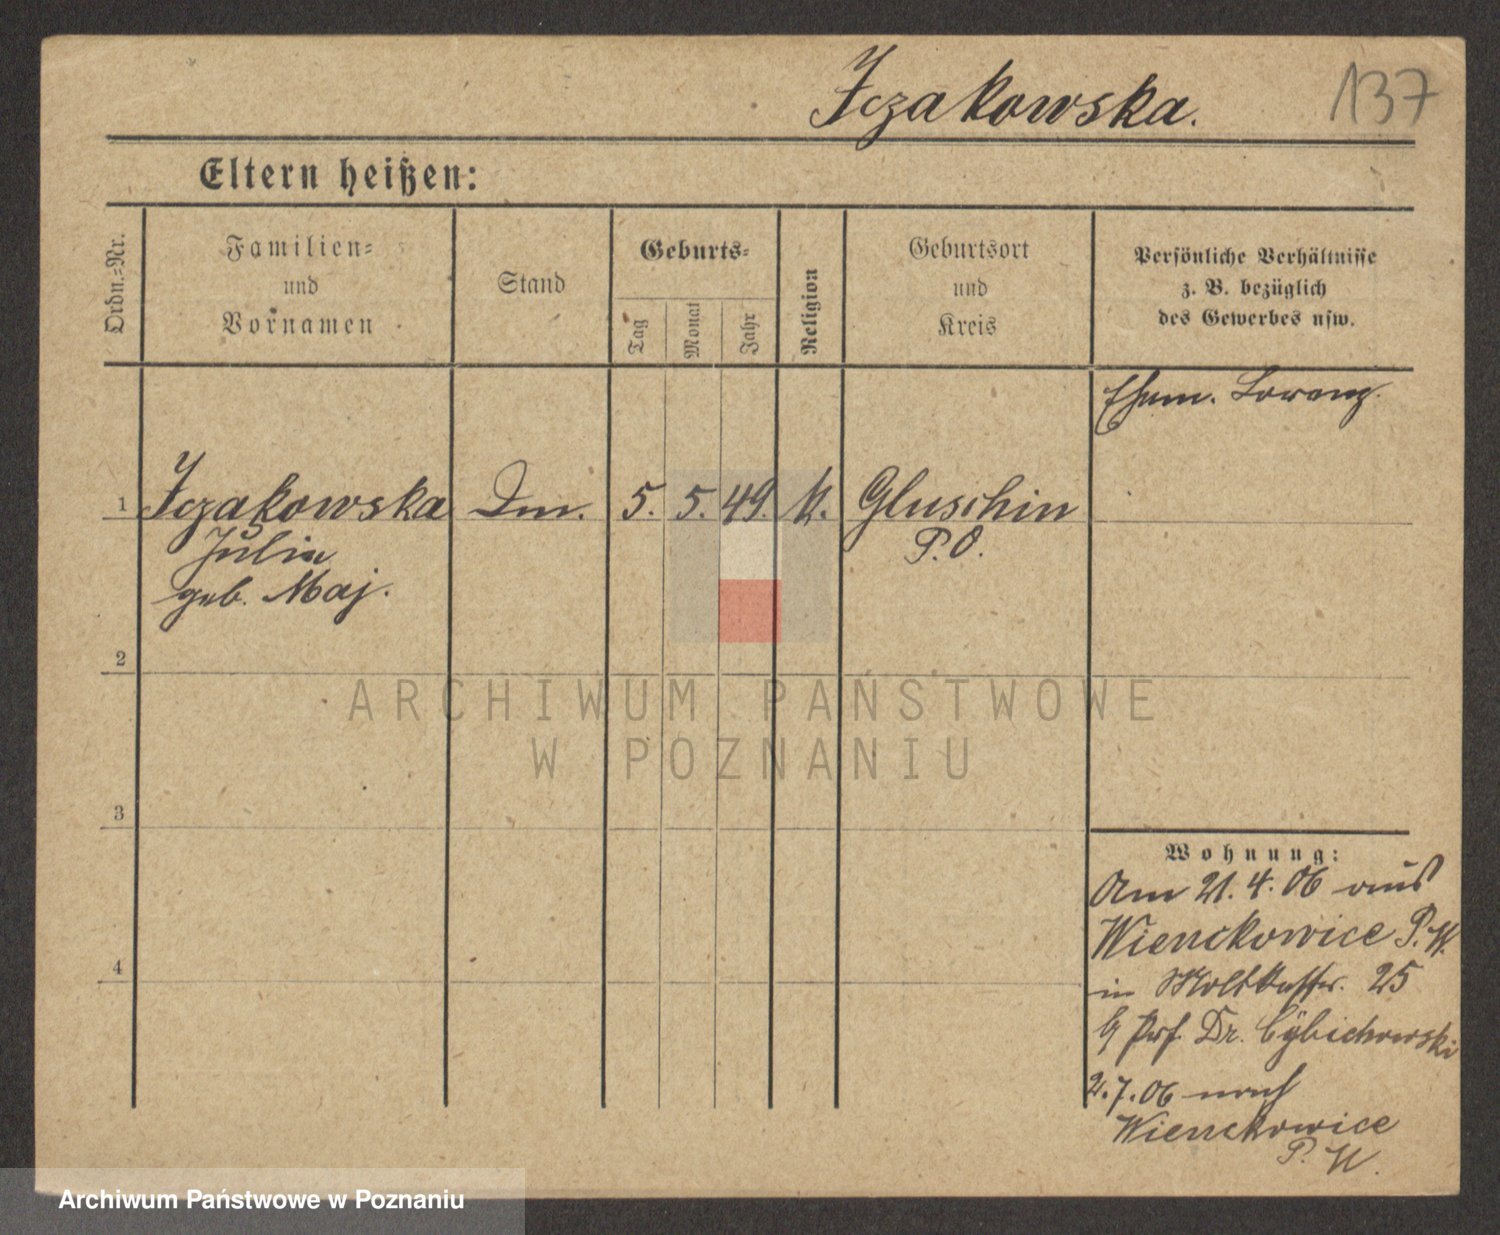 Iczakowska.
137
Eltern heißen:
Ordn.-Nr.
Familien-
und
Vornamen
Stand
Geburts-
Tag
Monat
Jahr
Religion
Geburtsort
und
Kreis
Persönliche Verhältnisse
z. B. bezüglich
des Gewerbes usw.
Ehem. Lorenz.
1 Iczakowska 5. 5. 49. K. Gluschin
Julia P. O.
geb. Maj.
2
3
4
Wohnung:
Am 21. 4. 06 aus
Wienckowice P. W.
in Moltkestr. 25
b/ Prf. Dr. Cybichowski
2. 7. 06 nach
Wienckowice
P. W.
ARCHIWUM PAŃSTWOWE
W POZNANIU
Archiwum Państwowe w Poznaniu